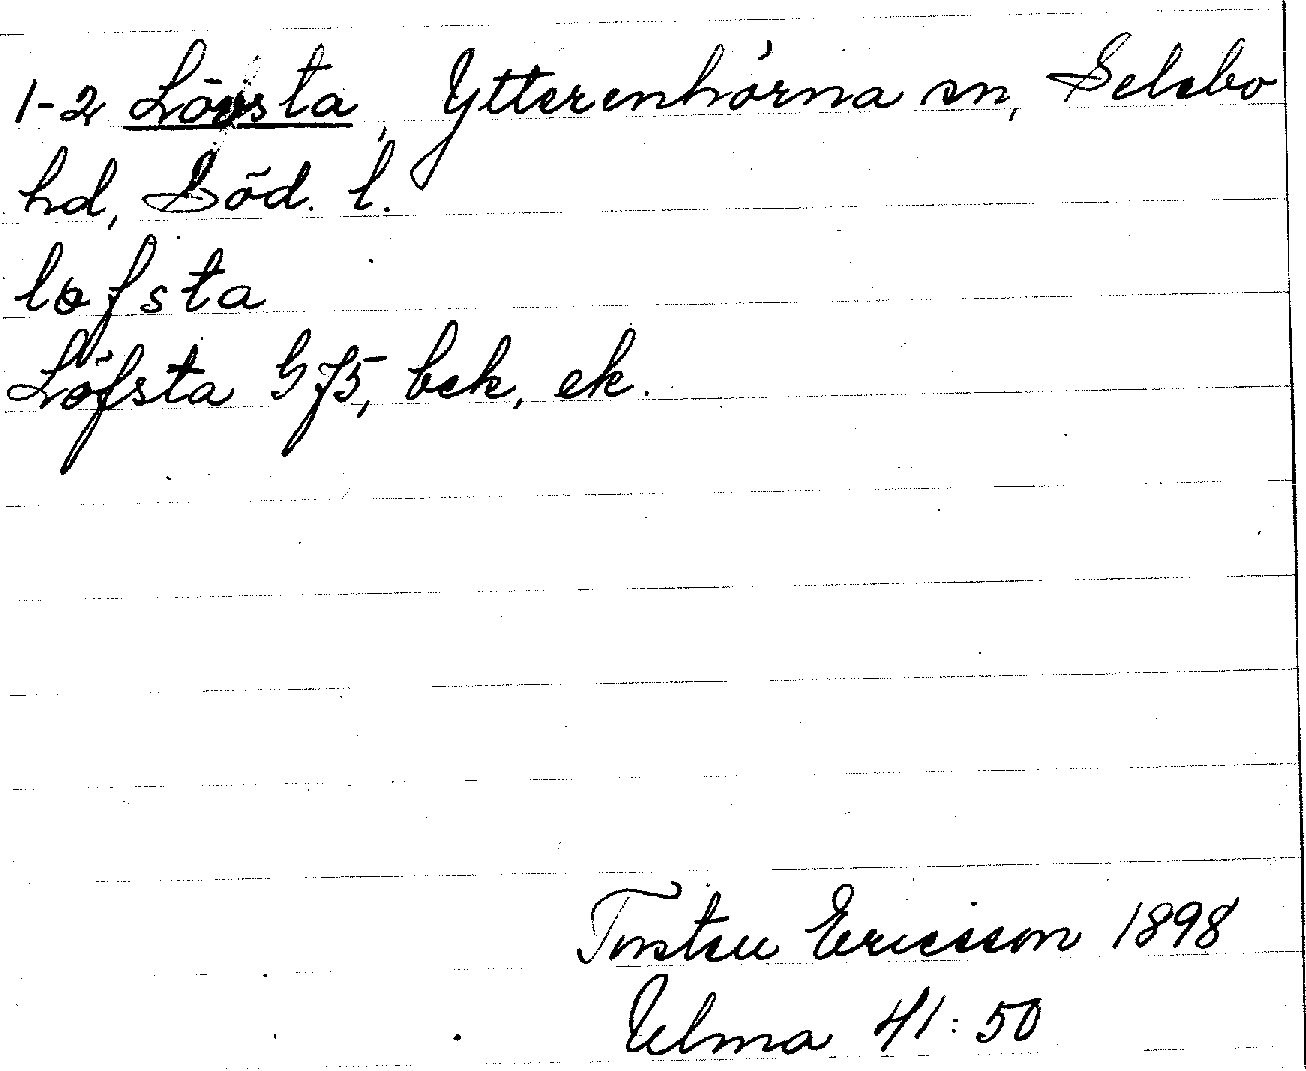 1-2 Lövsta, Ytterenhörna sn, Selebo
hd, Söd. l.
lofsta
Löfsta G 75, bek, ek.
Torsten Ericsson 1898
Ulma 41:50